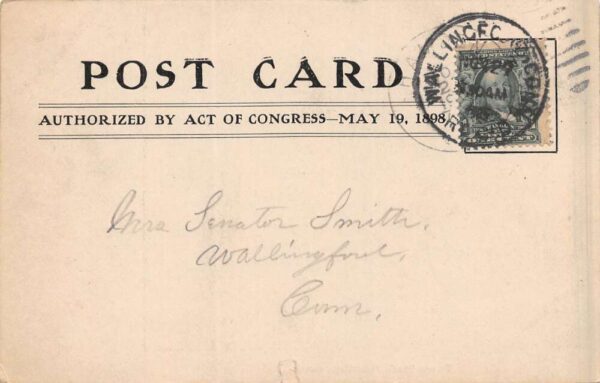 POST CARD
AUTHORIZED BY ACT OF CONGRESS—MAY 19, 1898
WALLINGFORD
AM
Mrs Senator Smith,
Wallingford,
Conn,